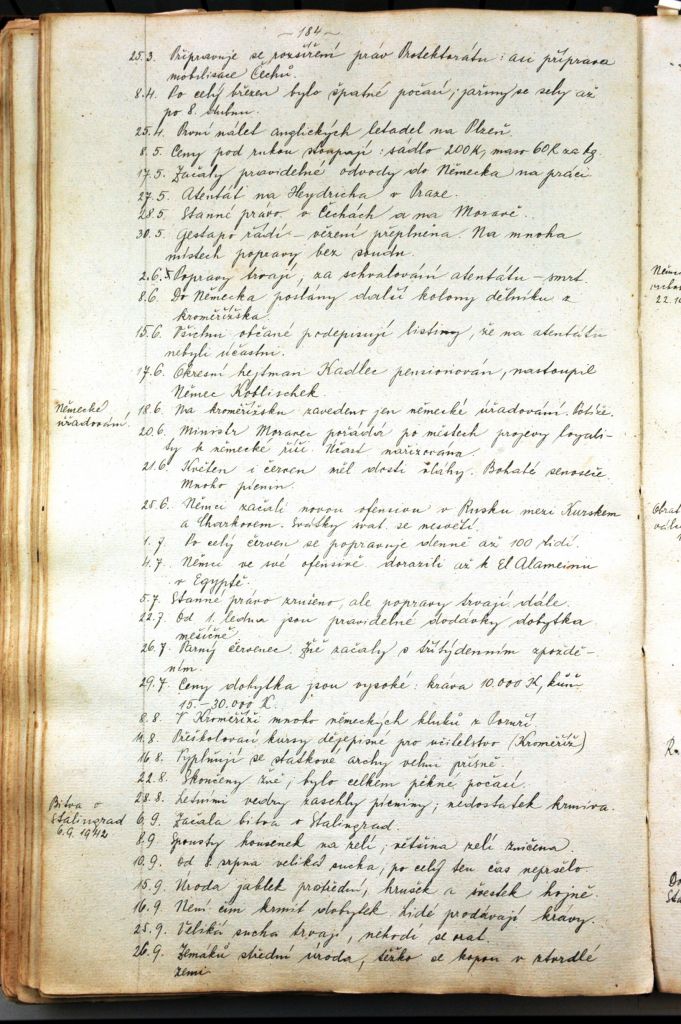 - 184 -
25.3. Připravuje se rozšíření práv Protektorátu: asi příprava
mobilisace Čechů.
8.4. Po celý březen bylo špatné počasí; jařiny se sely až
po 8. dubnu.
25.4. První nálet anglických letadel na Plzeň.
8.5. Ceny pod rukou stoupají: sádlo 200K, maso 60K za kg.
17.5. Začaly pravidelné odvody do Německa na práci
27.5. Atentát na Heydricha v Praze.
28.5. Stanné právo v Čechách a na Moravě.
30.5. Gestapo řádí - vězení přeplněna. Na mnoha
místech popravy bez soudu.
2.6. Popravy trvají, za schvalování atentátu - smrt.
8.6. Do Německa poslány další kolony dělníků z
kroměřížska.
15.6. Všichni občané podepisují listiny, že na atentátu
nebyli účastni.
17.6. Okresní hejtman Kadlec pensionován, nastoupil
Němec Koblischek.
Německé
úřadování.
18.6. Na kroměřížsku zavedeno jen německé úřadování.
20.6. Ministr Moravec pořádá po městech projevy loyali-
ty k německé říši. Účast nařizována.
21.6. Květen i červen měl dosti vláhy. Bohatá senoseč.
Mnoho pícnin.
25.6. Němci začali novou ofensivu v Rusku mezi Kurskem
a Charkovem. Svátky svat. se nesvětí.
1.7. Po celý červen se popravuje denně až 100 lidí.
4.7. Němci ve své ofensivě dorazili až k El Alameinu
v Egyptě.
5.7. Stanné právo zrušeno, ale popravy trvají dále.
22.7. Od 1. ledna jsou pravidelné dodávky dobytka
měsíčně.
26.7. Parný červenec. Žně začaly s třítýdenním zpoždě-
ním.
29.7. Ceny dobytka jsou vysoké: kráva 10.000 K, kůň
15.-30.000 K.
8.8. V Kroměříži mnoho německých kluků z Porúří.
11.8. Přeškolovací kursy dějepisné pro učitelstvo (Kroměříž)
16.8. Vyplňují se statkové archy velmi přísně.
22.8. Skončeny žně; bylo celkem pěkné počasí.
28.8. Letními vedry zaschly pícniny; nedostatek krmiva.
Bitva o
Stalingrad
6.9.1942
6.9. Začala bitva o Stalingrad.
8.9. Spousty housenek na zelí; většina zelí zničena.
10.9. Od srpna veliká sucha, po celý ten čas nepršelo.
15.9. Úroda jablek prostřední, hrušek a švestek hojně.
16.9. Není čím krmit dobytek. Lidé prodávají krávy.
25.9. Veliká sucha trvají, nehodí se orat.
26.9. Zemáků střední úroda, těžko se kopou v ztvrdlé
zemi